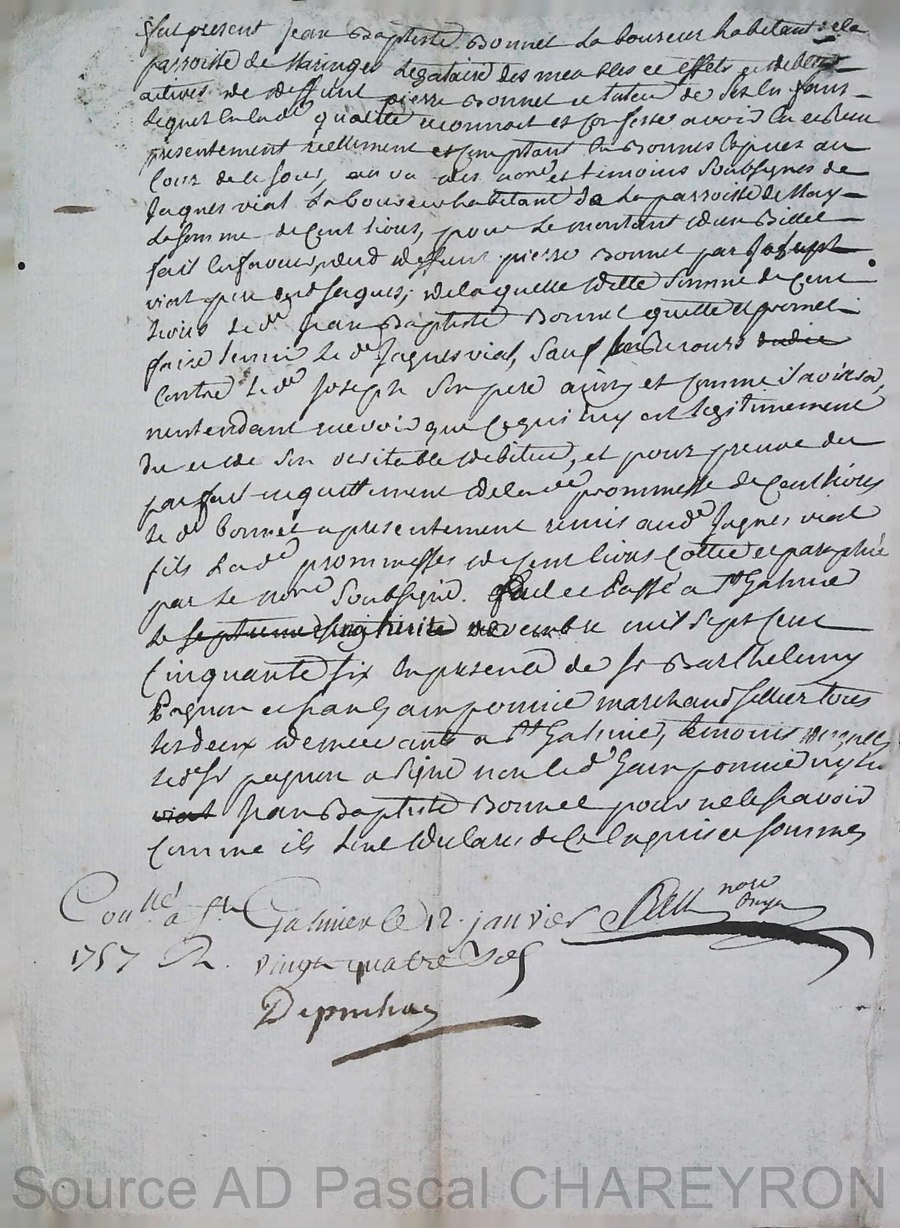 fut present Jean Baptiste Bonnet Laboureur habitant de la
parroisse de Maringes Legataire des meubles et effets et debtes
actives de deffunt pierre Bonnet et tuteur de ses Enfans
lequel En lad.e qualité reconnoit et Confesse avoir Eu et Receu
presentement reellement et Comptant En Bonnes Especes au
Cours de ce jour, au vu des no.re et temoins Soubsignes de
Jaques vial Laboureur habitant de La parroisse de
La somme de Cent livres, pour Le montant d'un Billet
fait En faveur dud deffunt pierre Bonnet par Joseph
vial pere dud Jacques; de laquelle ditte Somme de Cent
livres Le d.t Jean Baptiste Bonnet quitte et promet
faire tenir Le d.t Jaques vial, Sauf Son Recours
Contre Le d.t Joseph Son pere et Comme il avisera,
nentendant recevoir que Ce qui luy est legitimement
du et de Son veritable debiteur, et pour preuve du
parfait acquittement de lad.e prommesse de Cent livres
Le d.t Bonnet a presentement remis aud.t Jaques vial
fils Lad.e prommesses de Cent livres Cottée et paraphée
par Le no.re Soubsigné. fait et Passé a St Galmier
Le novembre mil Sept Cent
Cinquante Six En presence de Sr Barthelemy
Pagnon et marchand Sellier tous
Les deux demeurants a St Galmier, temoins
led Sr pagnon a Signé non led. ny Led
Jean Baptiste Bonnet pour ne le Scavoir
Comme ils L'ont déclaré de Ce Enquis et sommés
no.re Royal
Con.llé a St Galmier Le 12 janvier
1757 R. vingt quatre sols